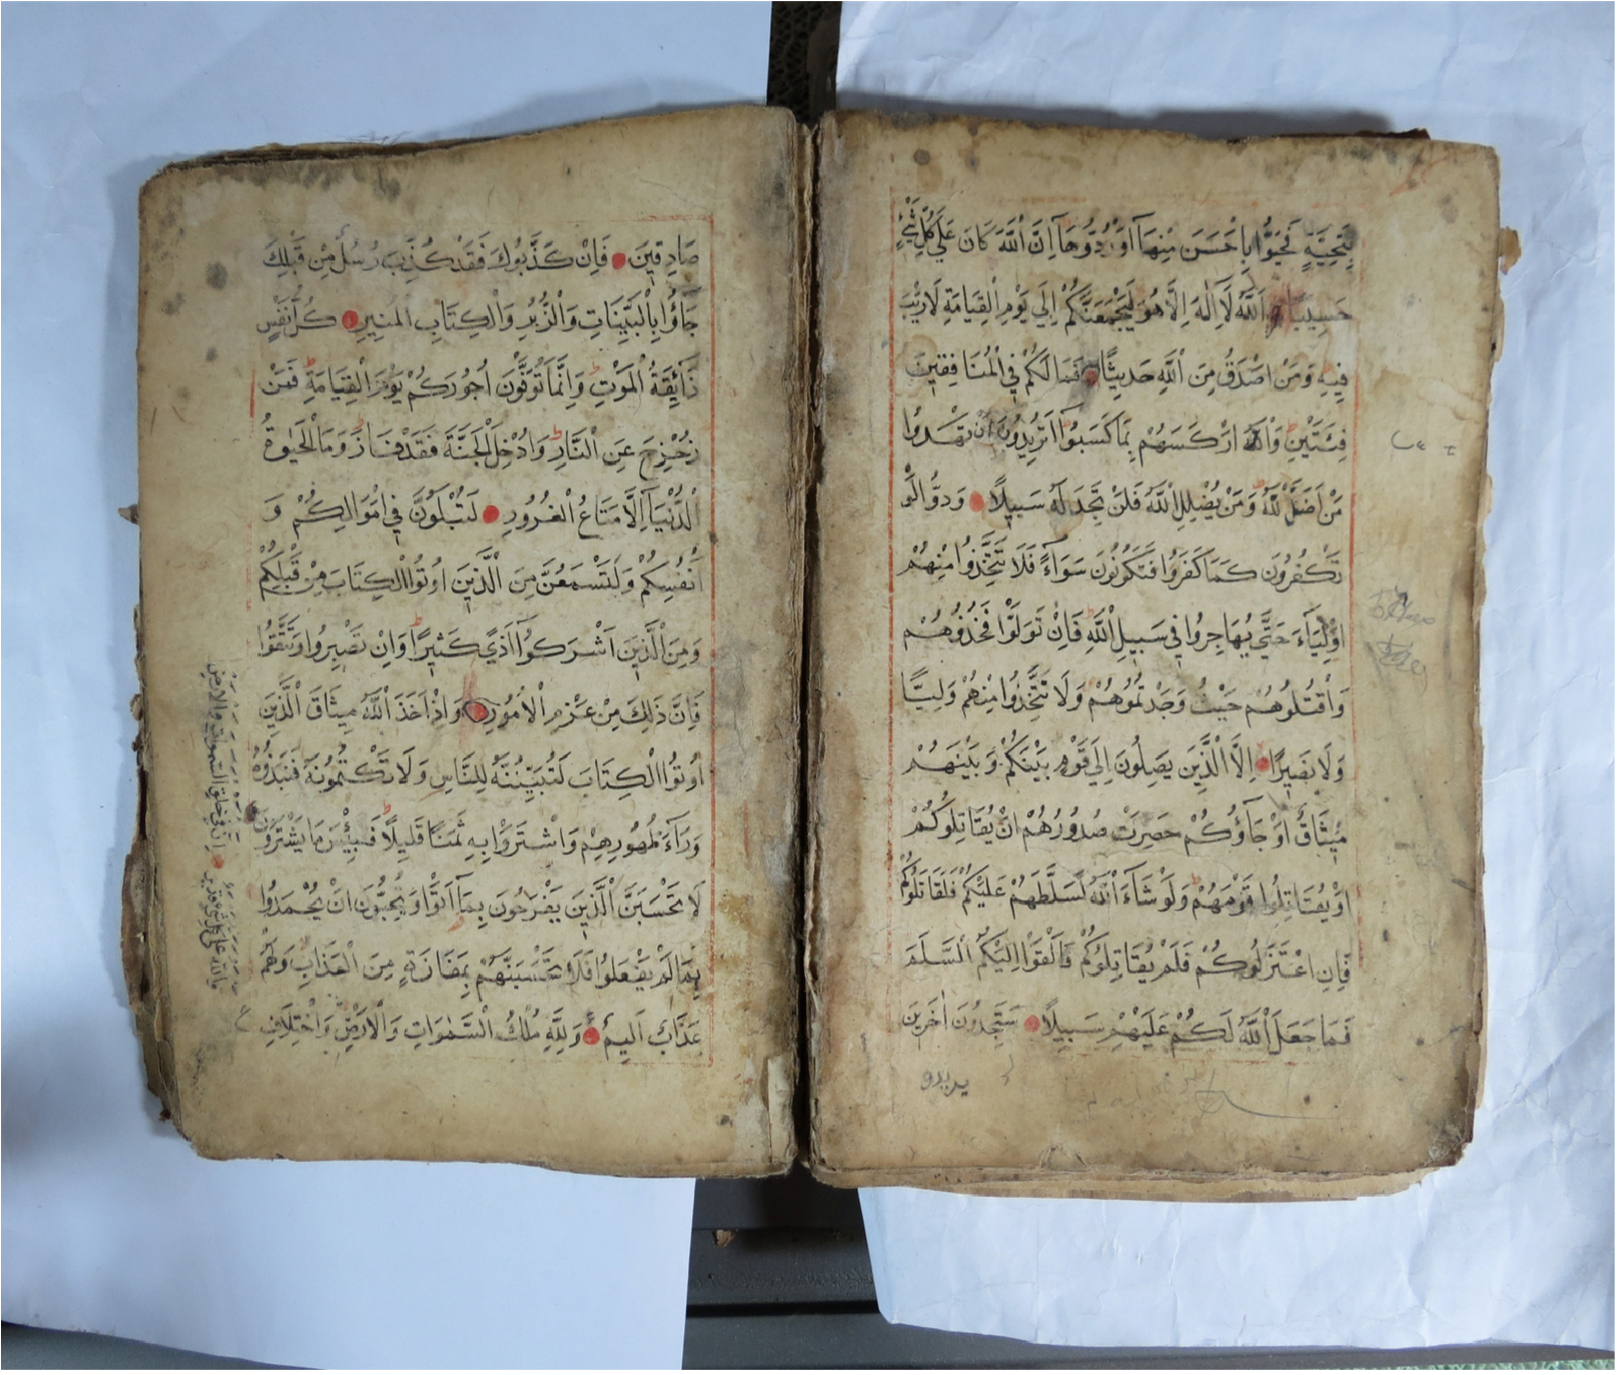 بِتَحِيَّةٍ فَحَيُّوا بِاَحْسَنَ مِنْهَآ اَوْ رُدُّوهَآ اِنَّ اللّٰهَ كَانَ عَلَي كُلِّ شَيْءٍ
حَسِيبًا اَللّٰهُ لَآ اِلٰهَ اِلَّا هُوَ لَيَجْمَعَنَّكُمْ اِلَي يَوْمِ الْقِيَامَةِ لَا رَيْبَ
فِيهِ وَمَنْ اَصْدَقُ مِنَ اللّٰهِ حَدِيثًا فَمَا لَكُمْ فِي الْمُنَافِقِينَ
فِئَتَيْنِ وَاللّٰهُ اَرْكَسَهُمْ بِمَا كَسَبُوآ اَتُرِيدُونَ اَنْ تَهْدُوا
مَنْ اَضَلَّ اللّٰهُ وَمَنْ يُضْلِلِ اللّٰهُ فَلَنْ تَجِدَ لَهُ سَبِيلًا وَدُّوا لَوْ
تَكْفُرُونَ كَمَا كَفَرُوا فَتَكُونُونَ سَوَآءً فَلَا تَتَّخِذُوا مِنْهُمْ
اَوْلِيَآءَ حَتَّي يُهَاجِرُوا فِي سَبِيلِ اللّٰهِ فَاِنْ تَوَلَّوْا فَخُذُوهُمْ
وَاقْتُلُوهُمْ حَيْثُ وَجَدْتُمُوهُمْ وَلَا تَتَّخِذُوا مِنْهُمْ وَلِيًّا
وَلَا نَصِيرًا اِلَّا الَّذِينَ يَصِلُونَ اِلَي قَوْمٍ بَيْنَكُمْ وَبَيْنَهُمْ
مِيثَاقٌ اَوْ جَآؤُكُمْ حَصِرَتْ صُدُورُهُمْ اَنْ يُقَاتِلُوكُمْ
اَوْ يُقَاتِلُوا قَوْمَهُمْ وَلَوْ شَآءَ اللّٰهُ لَسَلَّطَهُمْ عَلَيْكُمْ فَلَقَاتَلُوكُمْ
فَاِنِ اعْتَزَلُوكُمْ فَلَمْ يُقَاتِلُوكُمْ وَاَلْقَوْا اِلَيْكُمُ السَّلَمَ
فَمَا جَعَلَ اللّٰهُ لَكُمْ عَلَيْهِمْ سَبِيلًا سَتَجِدُونَ اٰخَرِينَ
يريدو
صَادِقِينَ فَاِنْ كَذَّبُوكَ فَقَدْ كُذِّبَ رُسُلٌ مِنْ قَبْلِكَ
جَآؤُا بِالْبَيِّنَاتِ وَالزُّبُرِ وَالْكِتَابِ الْمُنِيرِ كُلُّ نَفْسٍ
ذَآئِقَةُ الْمَوْتِ وَاِنَّمَا تُوَفَّوْنَ اُجُورَكُمْ يَوْمَ الْقِيَامَةِ فَمَنْ
زُحْزِحَ عَنِ النَّارِ وَاُدْخِلَ الْجَنَّةَ فَقَدْ فَازَ وَمَا الْحَيٰوةُ
الدُّنْيَآ اِلَّا مَتَاعُ الْغُرُورِ لَتُبْلَوُنَّ فِي اَمْوَالِكُمْ وَ
اَنْفُسِكُمْ وَلَتَسْمَعُنَّ مِنَ الَّذِينَ اُوتُوا الْكِتَابَ مِنْ قَبْلِكُمْ
وَمِنَ الَّذِينَ اَشْرَكُوآ اَذًي كَثِيرًا وَاِنْ تَصْبِرُوا وَتَتَّقُوا
فَاِنَّ ذٰلِكَ مِنْ عَزْمِ الْاُمُورِ وَاِذْ اَخَذَ اللّٰهُ مِيثَاقَ الَّذِينَ
اُوتُوا الْكِتَابَ لَتُبَيِّنُنَّهُ لِلنَّاسِ وَلَا تَكْتُمُونَهُ فَنَبَذُوهُ
وَرَآءَ ظُهُورِهِمْ وَاشْتَرَوْا بِهِ ثَمَنًا قَلِيلًا فَبِئْسَ مَا يَشْتَرُونَ
لَا تَحْسَبَنَّ الَّذِينَ يَفْرَحُونَ بِمَآ اَتَوْا وَيُحِبُّونَ اَنْ يُحْمَدُوا
بِمَا لَمْ يَفْعَلُوا فَلَا تَحْسَبَنَّهُمْ بِمَفَازَةٍ مِنَ الْعَذَابِ وَلَهُمْ
عَذَابٌ اَلِيمٌ وَلِلّٰهِ مُلْكُ السَّمٰوَاتِ وَالْاَرْضِ وَاخْتِلَافِ
وَاللّٰهُ عَلَي كُلِّ شَيْءٍ قَدِيرٌ اِنَّ فِي خَلْقِ السَّمٰوَاتِ وَالْاَرْضِ
ع